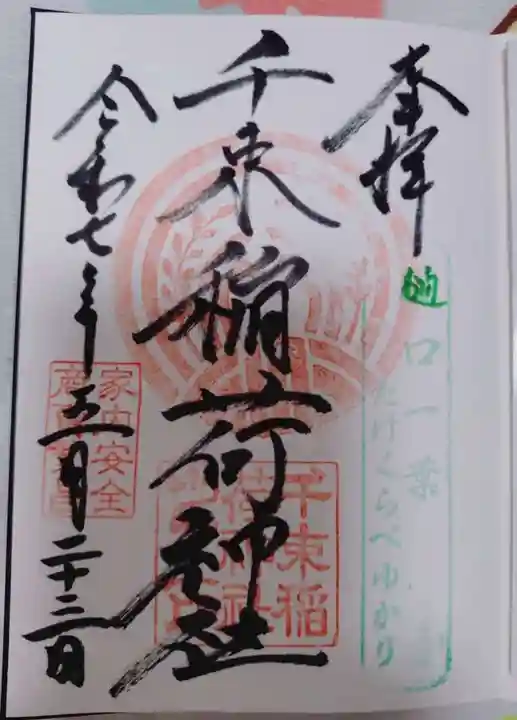 奉拝
樋口一葉
たけくらべゆかり
千束稲荷神社
千束稲
荷神社
家内安全
令和七年五月二十三日